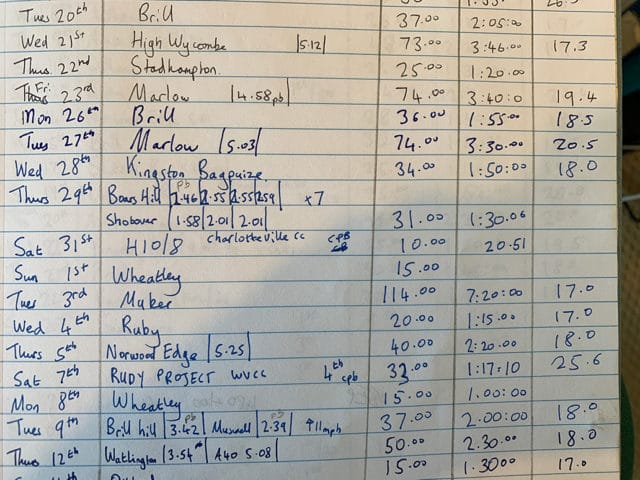 Tues 20th Brill 37.00 2:05:00
Wed 21st High Wycombe |5.12| 73.00 3:46.00 17.3
Thurs 22nd Stadhampton. 25.00 1:20.00
Fri 23rd Marlow |4.58pb| 74.00 3:40:0 19.4
Mon 26th Brill 36.00 1:55.00 18.5
Tues 27th Marlow |5.03| 74.00 3:30.00 20.5
Wed 28th Kingston Bagpuize. 34.00 1:50:00 18.0
pb
Thurs 29th Boars Hill |2.46|2.55|2.55|2.59| x7
Shotover |1.58|2.01|2.01| 31.00 1:30.06
Sat 31st H10/8 Charlotteville cc CPB 10.00 20.51
Sun 1st Wheatley 15.00
Tues 3rd 114.00 7:20:00 17.0
Wed 4th Ruby 20.00 1:15.00 17.0
Thurs 5th Norwood Edge |5.25| 40.00 2:20.00 18.0
Sat 7th RUDY PROJECT WVCC 4th cpb 33.00 1:17:10 25.6
Mon 8th Wheatley 15.00 1.00:00
pb pb
Tues 9th Brill hill |3.42| Muswell |2.39| ↑11mph 37.00 2.00:00 18.0
Thurs 12th Watlington |3.54| A40 5.08| 50.00 2.30.00 18.0
15.00 1.3000 17.0